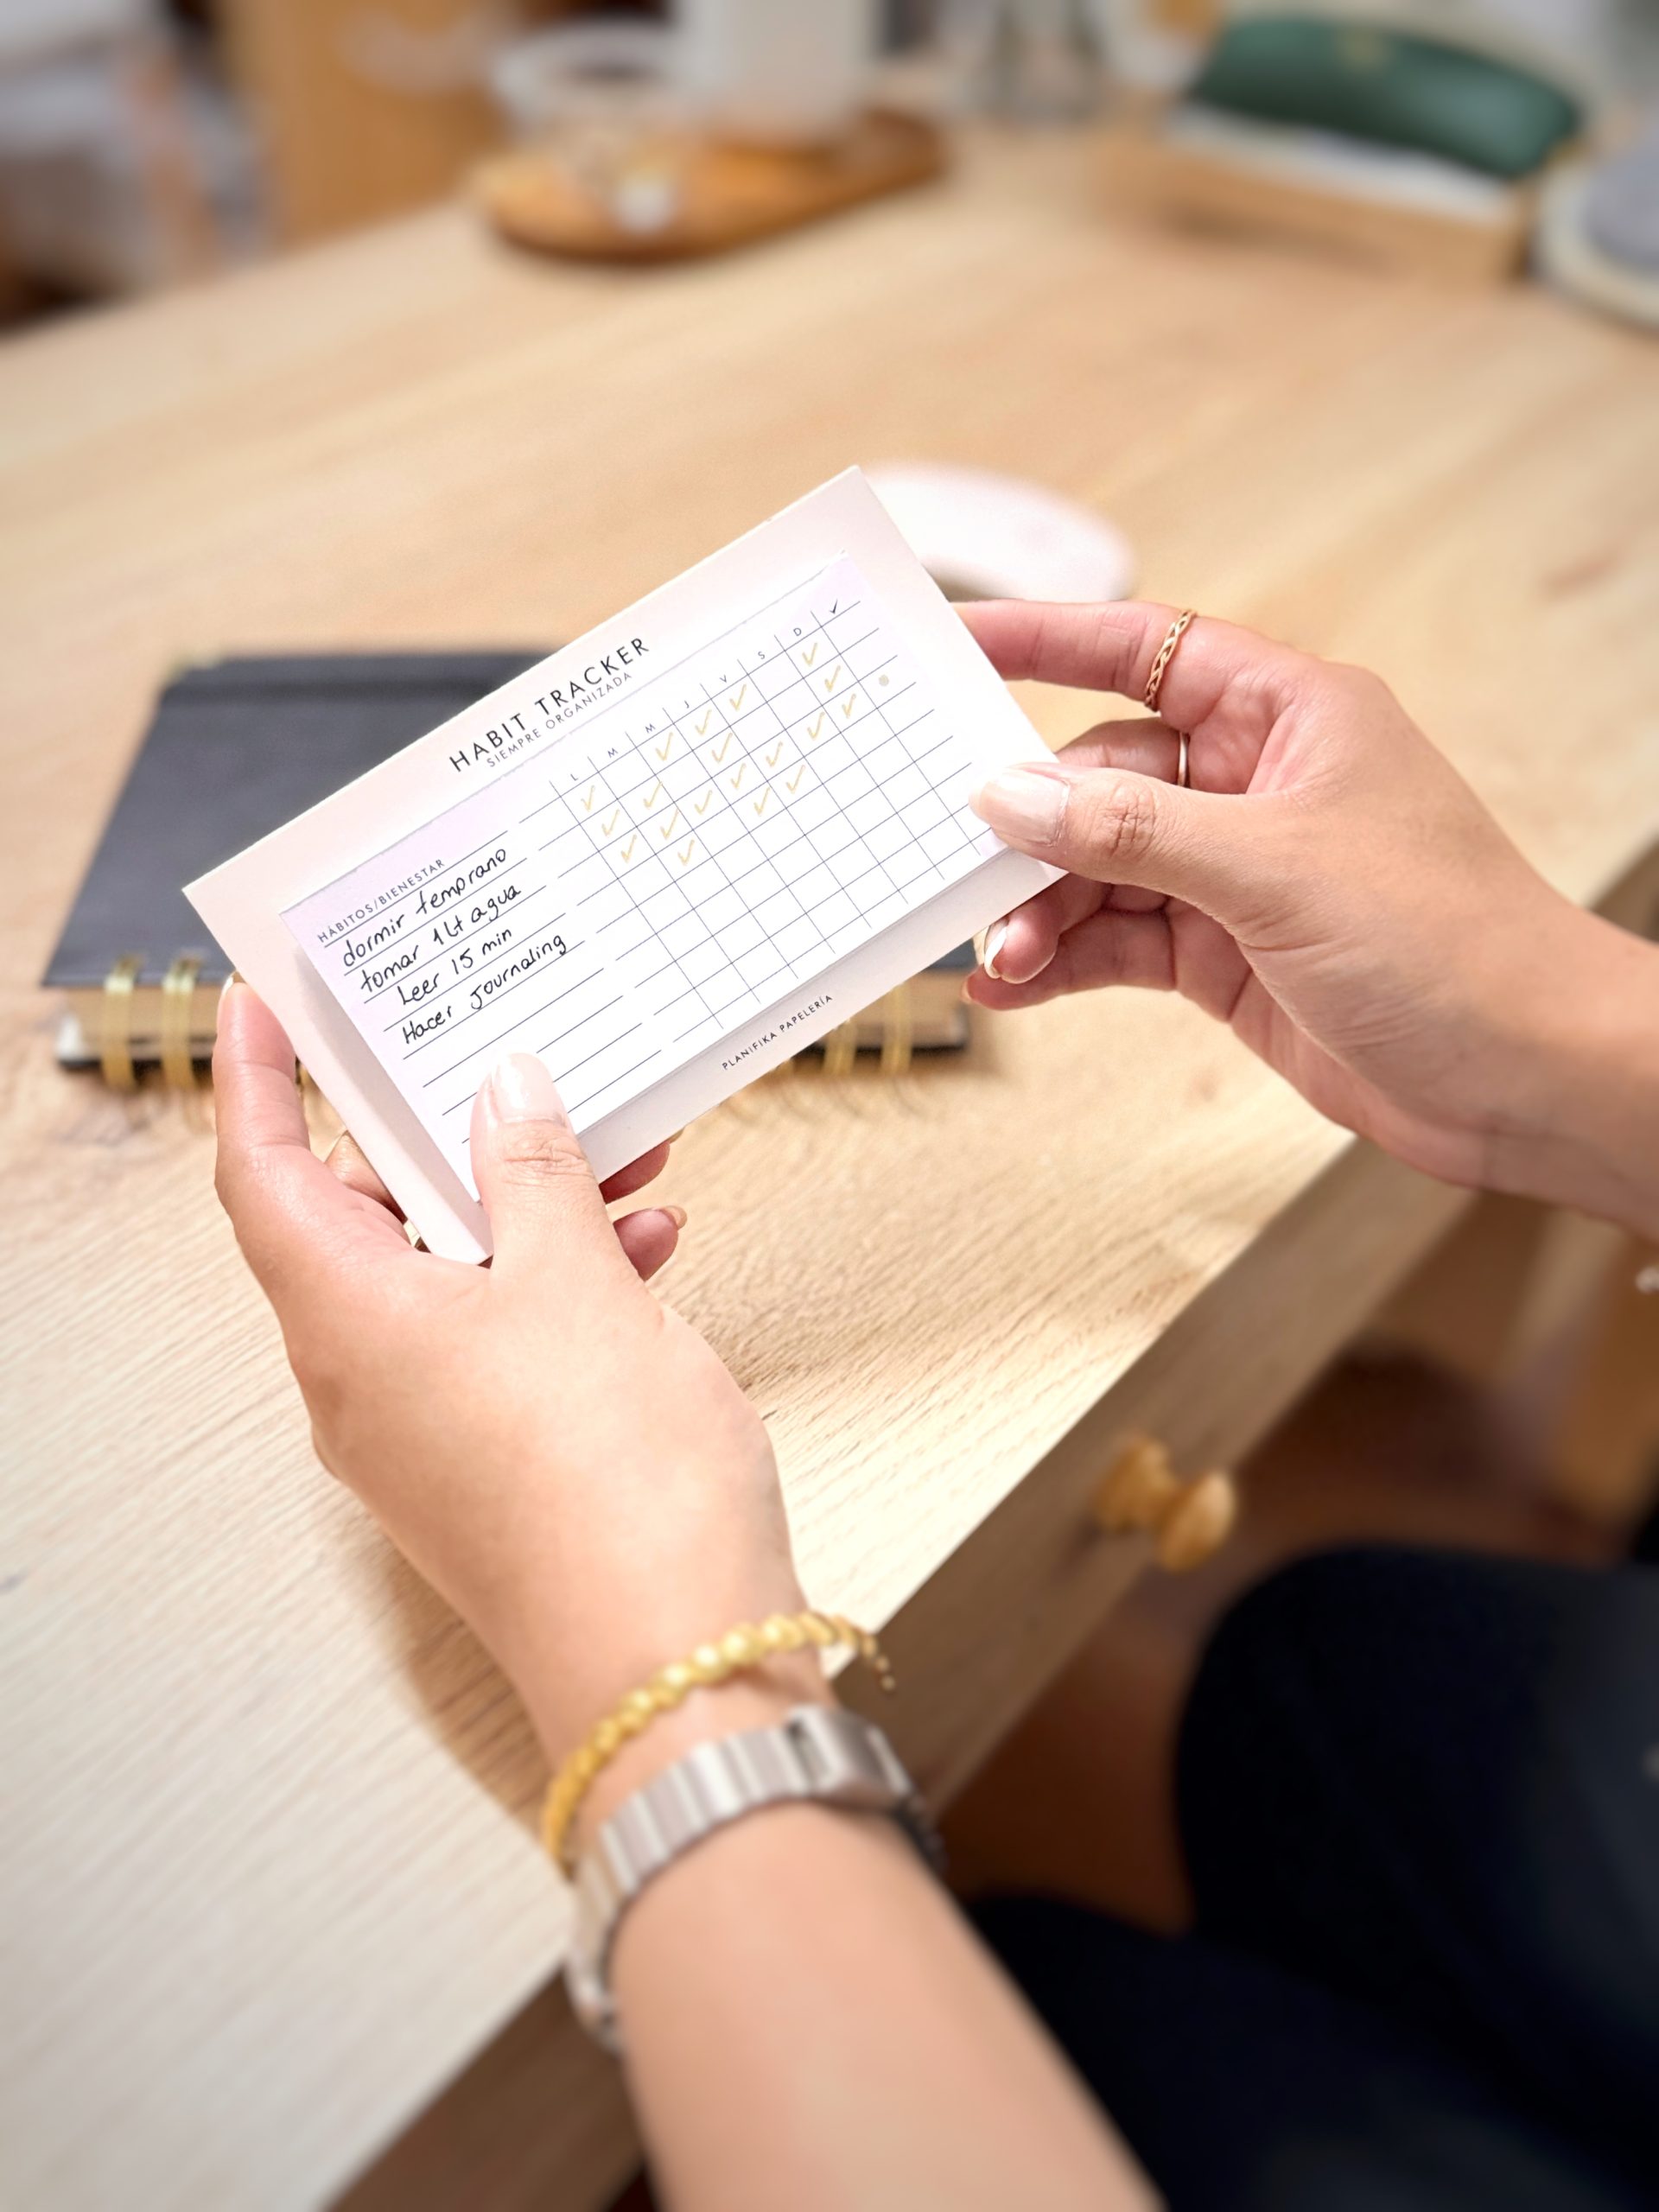 HABIT TRACKER
SIEMPRE ORGANIZADA
HÁBITOS/BIENESTAR L M M J V S D ✓
dormir temprano ✓ ✓ ✓ ✓ ✓
tomar 1Lt agua ✓ ✓ ✓ ✓
Leer 15 min ✓ ✓ ✓ ✓ ✓ ✓ ✓
Hacer Journaling ✓ ✓ ✓
PLANIFIKA PAPELERÍA